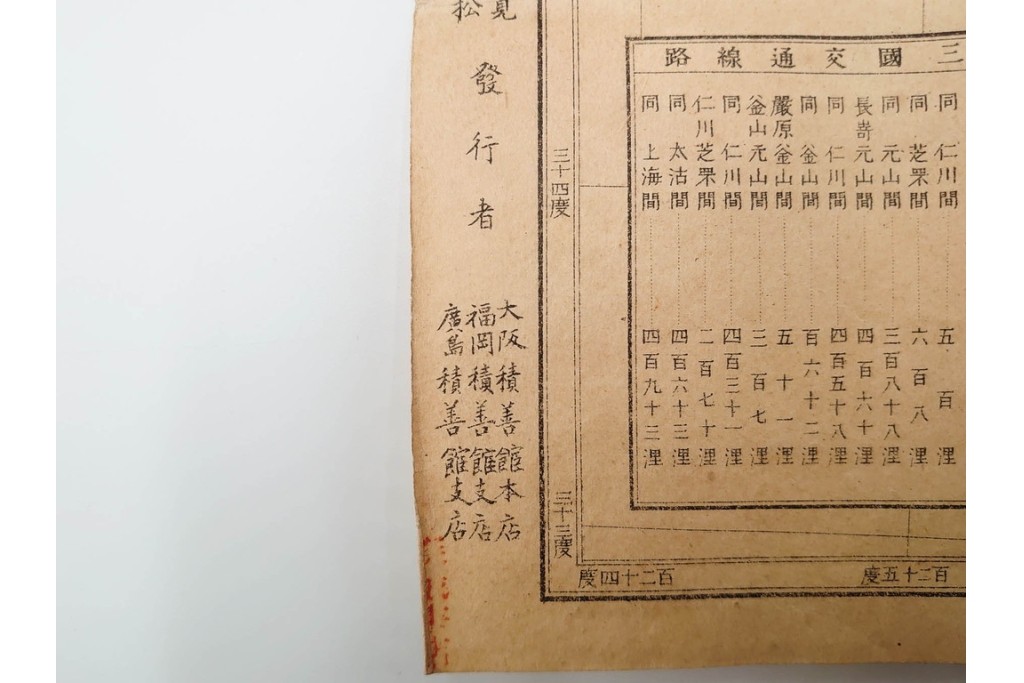 三國交通線路
同 仁川間 五百浬
同 芝罘間 六百八浬
同 元山間 三百八十八浬
長崎元山間 四百六十浬
同 仁川間 四百五十八浬
同 釜山間 百六十二浬
嚴原釜山間 五十一浬
釜山元山間 三百七浬
同 仁川間 四百三十一浬
仁川芝罘間 二百七十浬
同 太沽間 四百六十三浬
同 上海間 四百九十三浬
三十四度
三十三度
百二十五度
百二十四度
見
松
發行者
大阪積善館本店
福岡積善館支店
廣島積善館支店